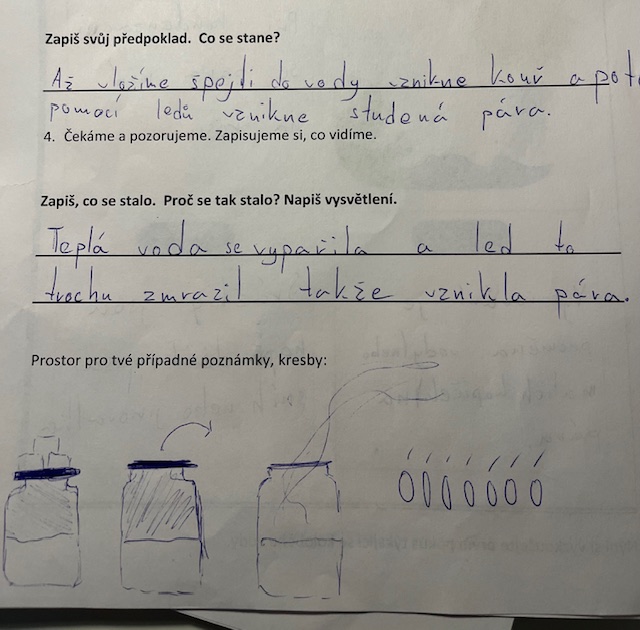 Zapiš svůj předpoklad. Co se stane?
Až vložíme špejli do vody vznikne kouř a pot
pomocí ledů vznikne studená pára.
4. Čekáme a pozorujeme. Zapisujeme si, co vidíme.
Zapiš, co se stalo. Proč se tak stalo? Napiš vysvětlení.
Teplá voda se vypařila a led to
trochu zmrazil takže vznikla pára.
Prostor pro tvé případné poznámky, kresby: